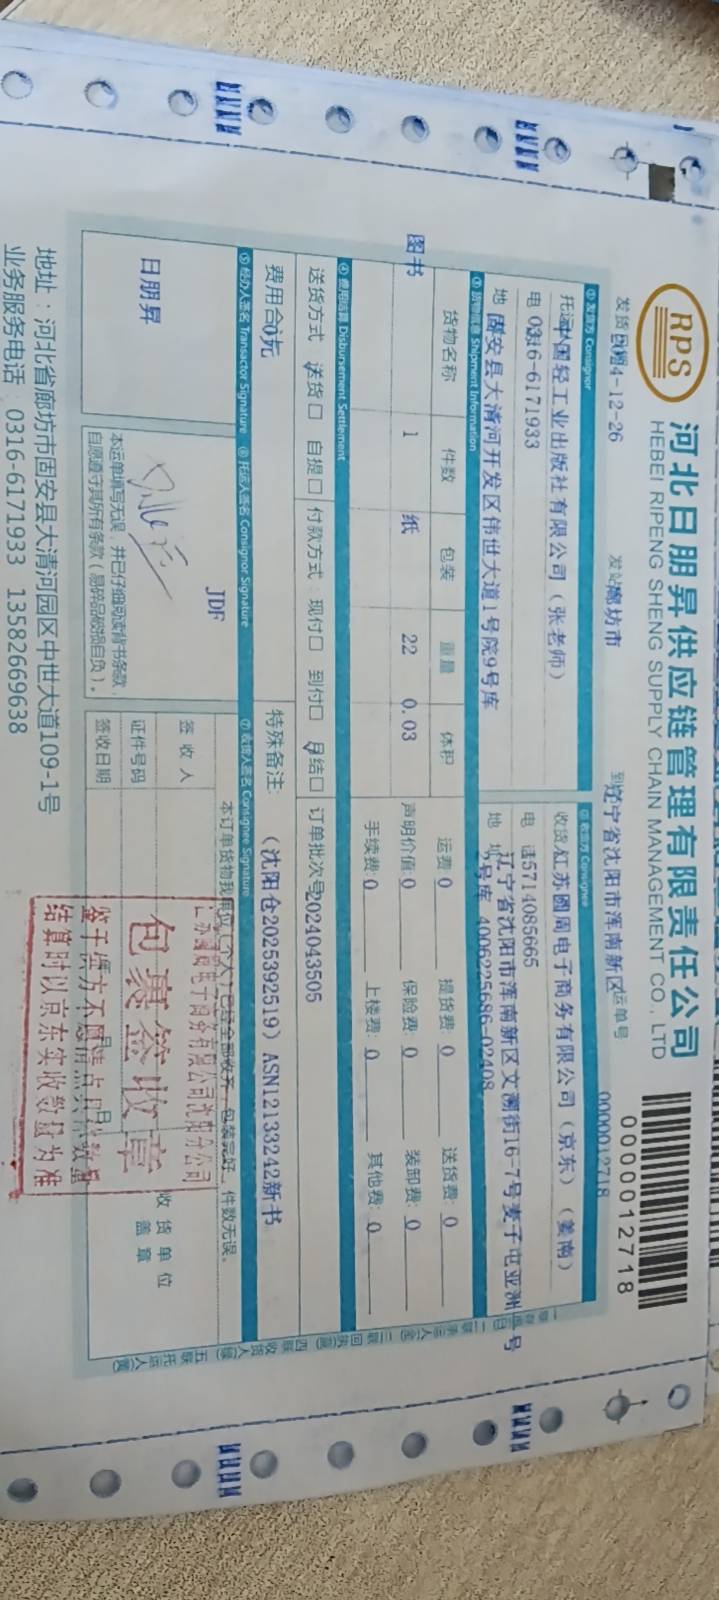 RPS
河北日朋昇供应链管理有限责任公司
HEBEI RIPENG SHENG SUPPLY CHAIN MANAGEMENT CO., LTD
0000012718
4-12-26
廊坊市
辽宁省沈阳市浑南新区
运单号
0000012718
① 发货方 Consignor
中国轻工业出版社有限公司（张老师）
0316-6171933
固安县大清河开发区伟世大道1号院9号库
② 收货方 Consignee
江苏圆周电子商务有限公司（京东）（姜南）
15714085665
辽宁省沈阳市浑南新区文溯街16-7号麦子屯亚洲
号库 4006225686-02408
③ 货物信息 Shipment Information
货物名称 件数 包装 重量 体积
图书 1 纸 22 0.03
运费：0 提货费：0 送货费：0
声明价值：0 保险费：0 装卸费：0
手续费：0 上楼费：0 其他费：0
④ 费用结算 Disbursement Settlement
送货方式 送货 自提 付款方式：现付 到付 月结 订单批次号2024043505
费用合 0元
特殊备注： （沈阳仓2025392519）ASN12133242新书
⑤ 经办人签名 Transactor Signature
⑥ 托运人签名 Consignor Signature
⑦ 收货人签名 Consignee Signature
日朋昇
JDF
本运单填写无误，并已仔细阅读背书条款，
自愿遵守其所有条款（易碎品破损自负）。
本订单货物我单位（个人）已经全部收齐，包装完好，件数无误。
签收人
证件号码
签收日期
收货单位
盖章
包裹签收章
结算时以京东实收数量为准
地址：河北省廊坊市固安县大清河园区中世大道109-1号
业务服务电话：0316-6171933 13582669638